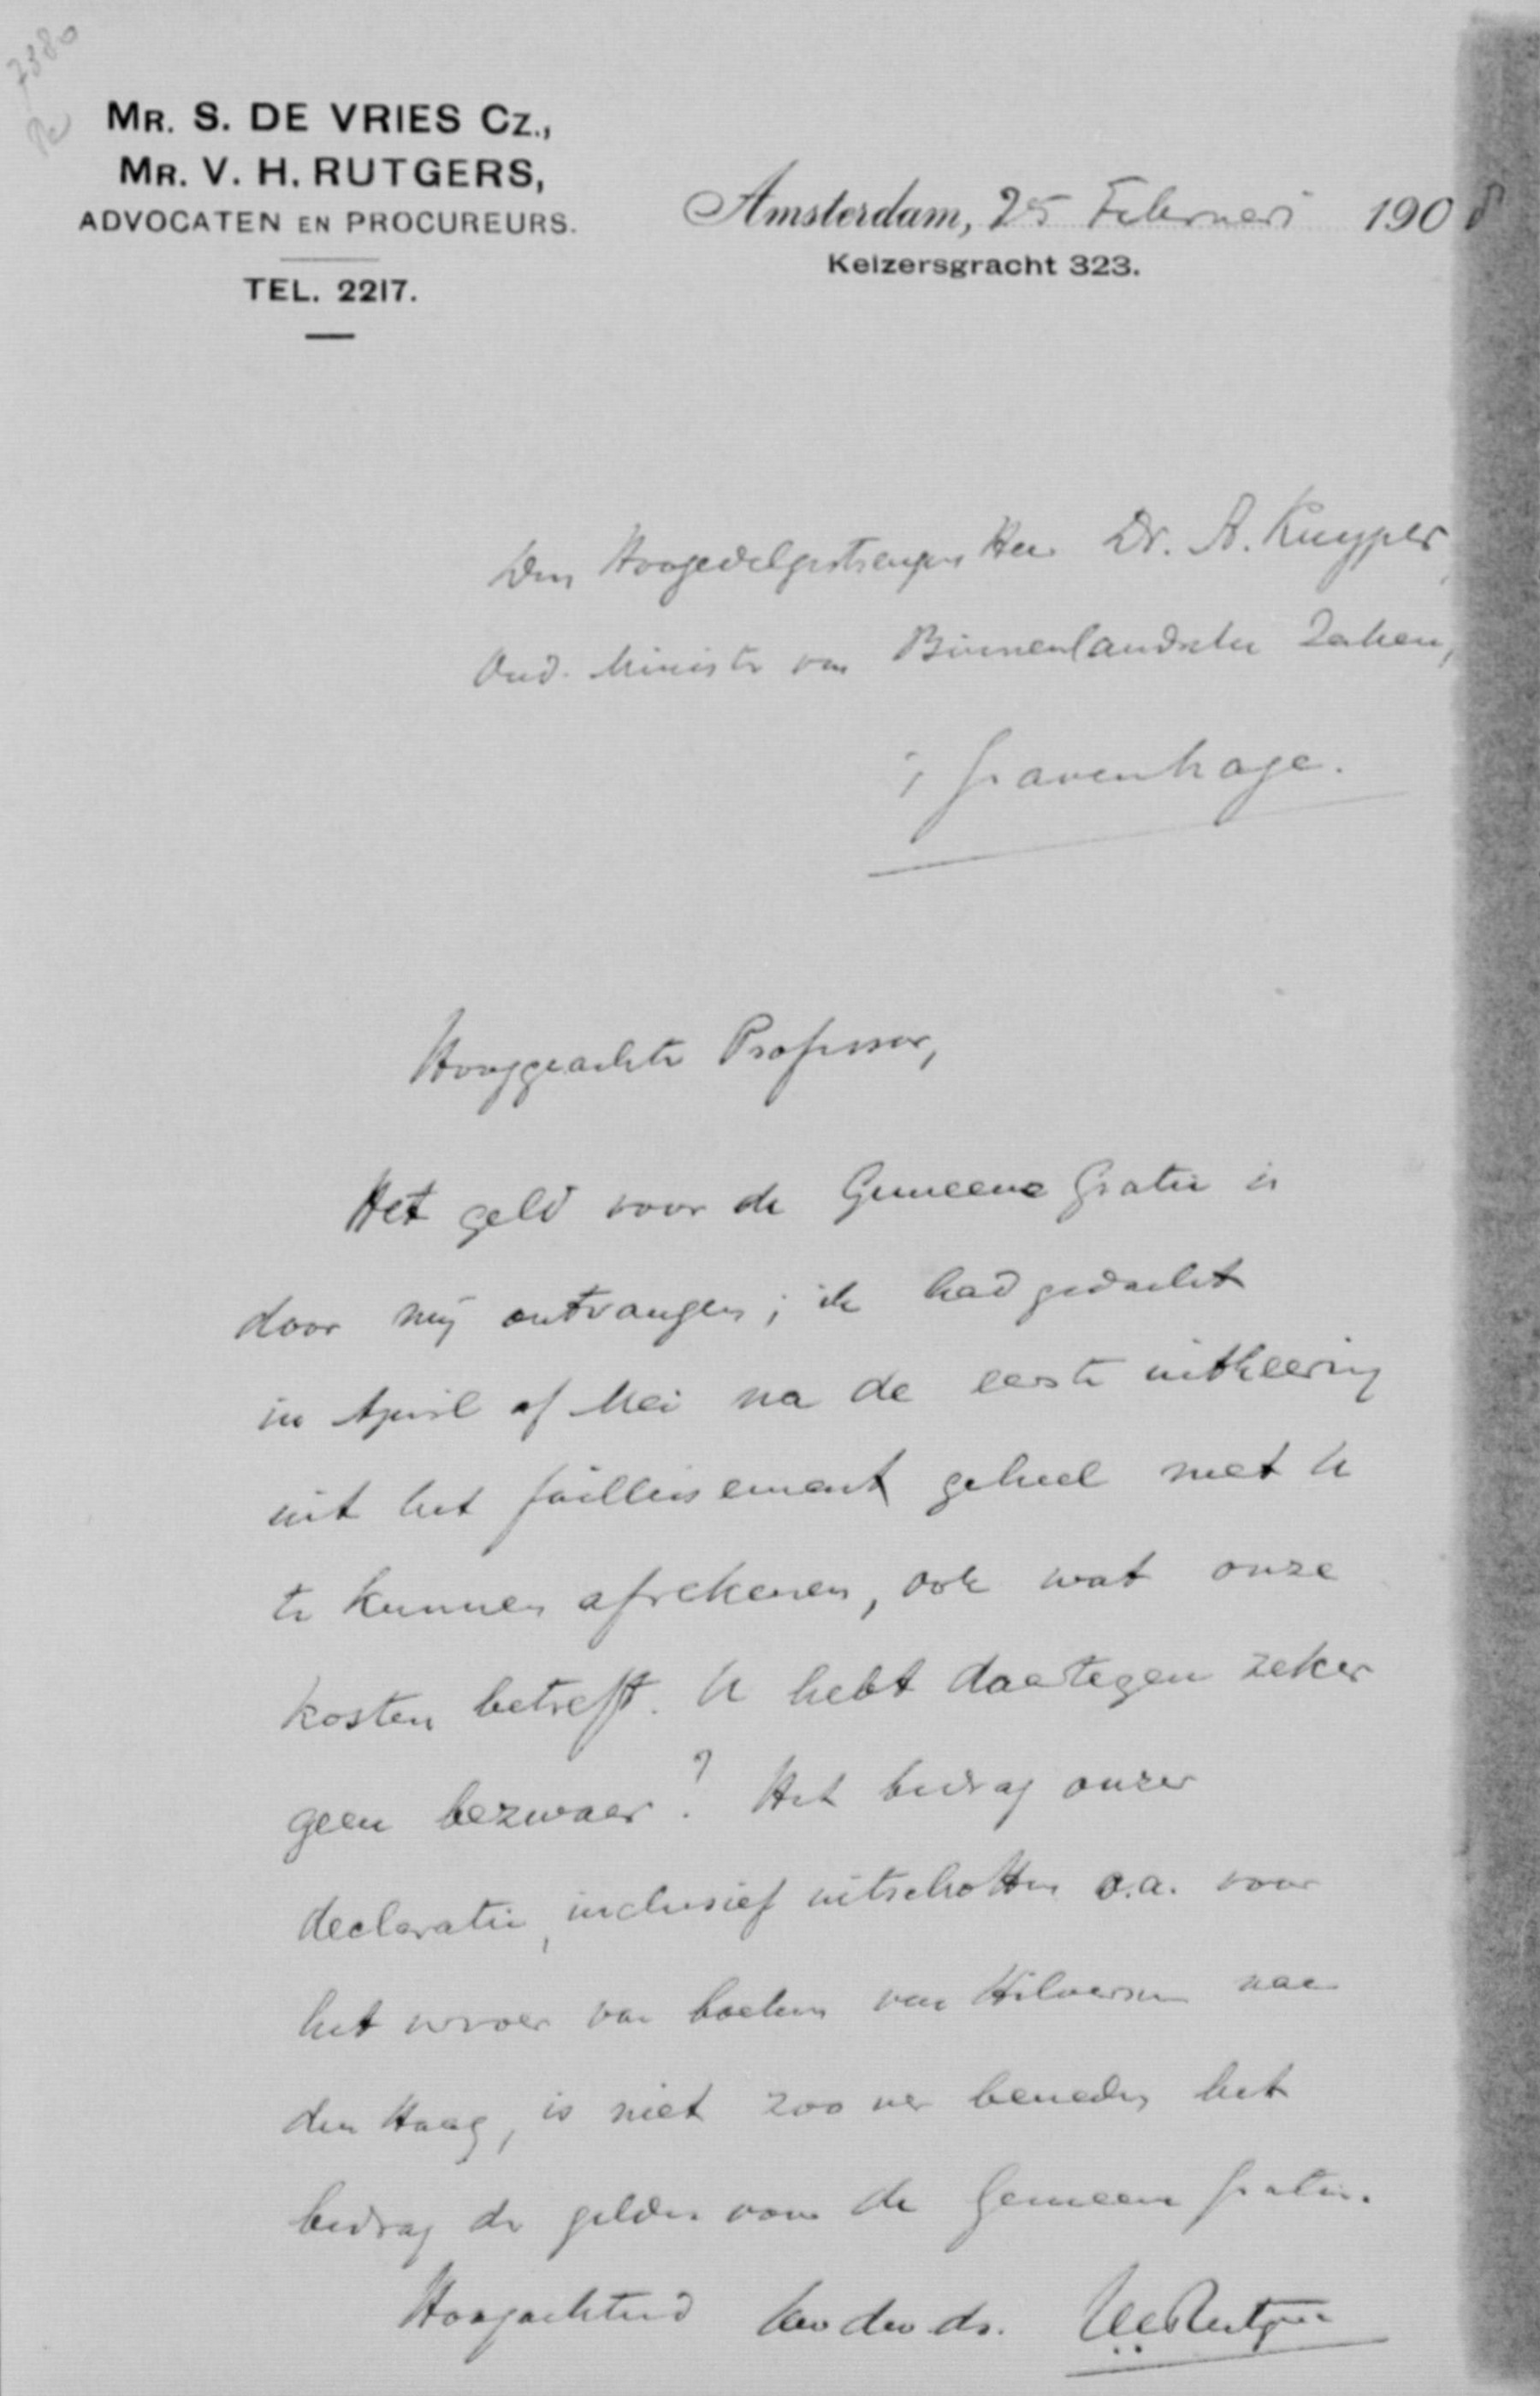 7380
MR. S. DE VRIES CZ.,
MR. V. H. RUTGERS,
ADVOCATEN EN PROCUREURS.
TEL. 2217.
Amsterdam, 25 Februari 1908
Keizersgracht 323.
Den Hoogedelgestrengen Heer Dr. A. Kuyper,
Oud-Minister van Binnenlandsche Zaken,
's Gravenhage.
Hooggeachte Professor,
Het geld voor de Gemeene Gratie is
door mij ontvangen; ik had gedacht
in April of Mei na de eerste uitkeering
uit het faillissement geheel met U
te kunnen afrekenen, ook wat onze
kosten betreft. U hebt daartegen zeker
geen bezwaar? Het bedrag onzer
declaratie, inclusief uitschotten o.a. voor
het vervoer van boeken van Hilversum naar
den Haag, is niet zoo ver beneden het
bedrag der gelden voor de Gemeene Gratie.
Hoogachtend Uw dw. dr. VHRutgers